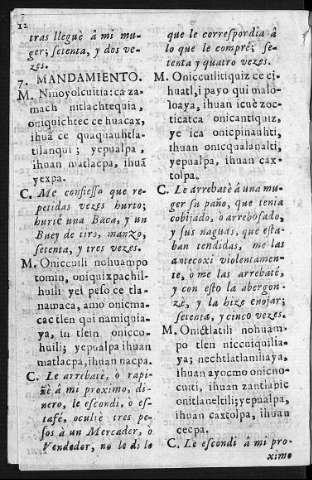 12
tras lleguè â mi mu-
ger; setenta, y dos ve-
zes.
7. MANDAMIENTO.
M. Ninoyolcuitia: ca za-
mach nitlachtequia,
oniquichtec ce huacax,
ihuã ce quaquauhtla-
tilanqui; yepualpa,
ihuan matlacpa, ihuã
yexpa.
C. Me confiesso que re-
petidas vezes hurto;
hurtè una Baca, y un
Buey de tiro, manzo,
setenta, y tres vezes.
M. Oniccuili nohuampo
tomin, oniquixpachil-
huili yet peso ce tla-
namaca, amo onicma-
cac tlen qui namiquia-
ya, in tlein onicco-
huili; yepualpa ihuan
matlacpa, ihuan nacpa.
C. Le arrebatè, ò rapi-
ñè â mi proximo, di-
nero, le escondi, ò es-
tafè, ocultè tres pe-
sos à un Mercader, ò
Vendedor, no le di lo
que le correspordia â
lo que le comprè; se-
tenta y quatro vezes.
M. Oniccuilitiquiz ce ci-
huatl, i payo qui malo-
loaya, ihuan icuè zoc-
ticatca onicantiquiz,
ye ica onicpinauhti,
ihuan onicqualanalti,
yepualpa, ihuan cax-
tolpa.
C. Le arrebatè â una mu-
ger su paño, que tenia
cobijado, ò arrebosado,
y sus naguas, que esta-
ban tendidas, me las
antecoxi violentamen-
te, ò me las arrebatè,
y con esto la abergon-
zè, y la hize enojar;
setenta, y cinco vezes.
M. Onictlatili nohuam-
po tlen niccuiquilia-
ya; nechtlatlaniliaya,
ihuan ayocmo onicno-
cuiti, ihuan zantlapic
onitlaneltili; yepualpa,
ihuan caxtolpa, ihuan
cecpa.
C. Le escondi â mi pro-
ximo